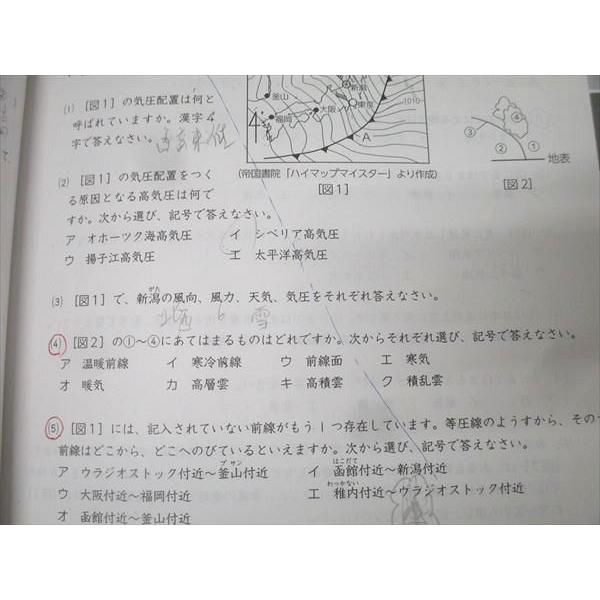 (1) [図1]の気圧配置は何と
呼ばれていますか。漢字4
字で答えなさい。西高東低
釜山
福岡
大阪
新潟
東京
1010
A
(帝国書院「ハイマップマイスター」より作成)
[図1]
④
③
②
①
地表
[図2]
(2) [図1]の気圧配置をつく
る原因となる高気圧は何で
すか。次から選び、記号で答えなさい。
ア オホーツク海高気圧 イ シベリア高気圧
ウ 揚子江高気圧 エ 太平洋高気圧
(3) [図1]で、新潟の風向、風力、天気、気圧をそれぞれ答えなさい。
がた
北西 6 雪
(4) [図2]の①〜④にあてはまるものはどれですか。次からそれぞれ選び、記号で答えなさい。
ア 温暖前線 イ 寒冷前線 ウ 前線面 エ 寒気
オ 暖気 カ 高層雲 キ 高積雲 ク 積乱雲
(5) [図1]には、記入されていない前線がもう1つ存在しています。等圧線のようすから、その
前線はどこから、どこへのびているといえますか。次から選び、記号で答えなさい。
プサン はこだて
ア ウラジオストック付近〜釜山付近 イ 函館付近〜新潟付近
わっかない
ウ 大阪付近〜福岡付近 エ 稚内付近〜ウラジオストック付近
オ 函館付近〜釜山付近